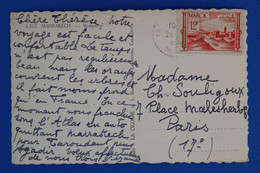 Chère Thérèse, notre
voyage est facile et
confortable. Le temps
n'est pas régulièrement
beau mais les oranges
couvrent les arbres et
il fait moins froid
qu'en France. En ce
moment nous franchissons
l'Atlas en auto
quittant Marrakech
pour Taroudant
de nous trois
MAROC
Madame
Ch. Souligoux
7 Place Malesherbes
Paris
(17e)